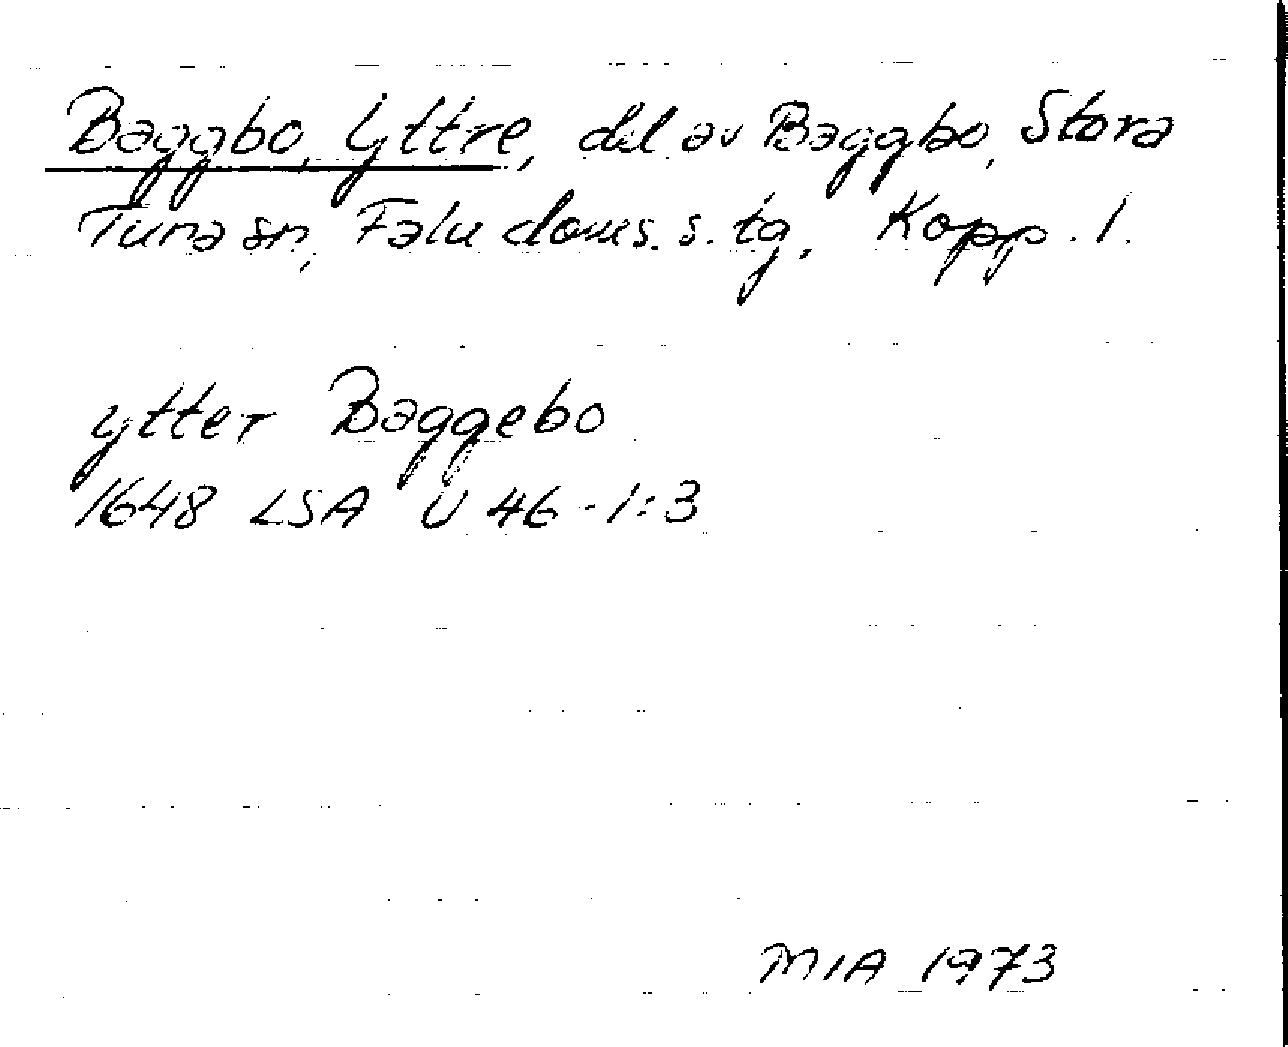 Baggbo, Yttre, del av Baggbo, Stora
Tuna sn, Falu doms. s. tg, Kopp. l.
ytter Baggebo
1648 LSA U 46-1:3
MIA 1973